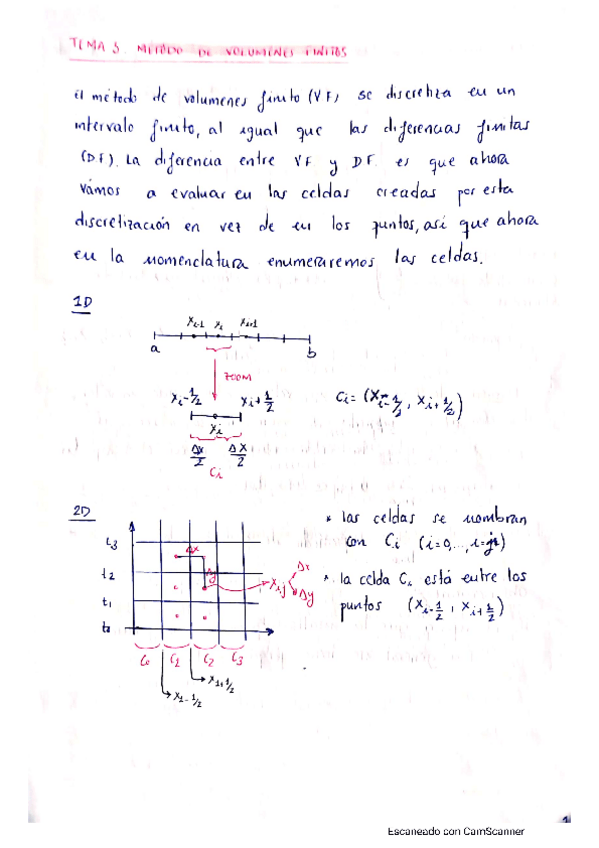 TEMA 5 METODO DE VOLUMENES FINITOS
El método de volumenes finito (VF) se discretiza en un
intervalo finito, al igual que las diferencias finitas
(DF). La diferencia entre VF y DF es que ahora
vamos a evaluar en las celdas creadas por esta
discretización en vez de en los puntos, así que ahora
en la nomenclatura enumeraremos las celdas.
1D
xi-1 xi xi+1
a b
ZOOM
xi-1/2 xi+1/2 Ci = (xi-1/2, xi+1/2)
xi
Δx/2 Δx/2
Ci
2D
* las celdas se nombran
con Ci (i=0,...,i=n)
* la celda Ci está entre los
puntos (xi-1/2, xi+1/2)
t3
Δx
t2 Δy xij Δx Δy
t1
C0 C1 C2 C3
x1+1/2
x1-1/2
1
Escaneado con CamScanner